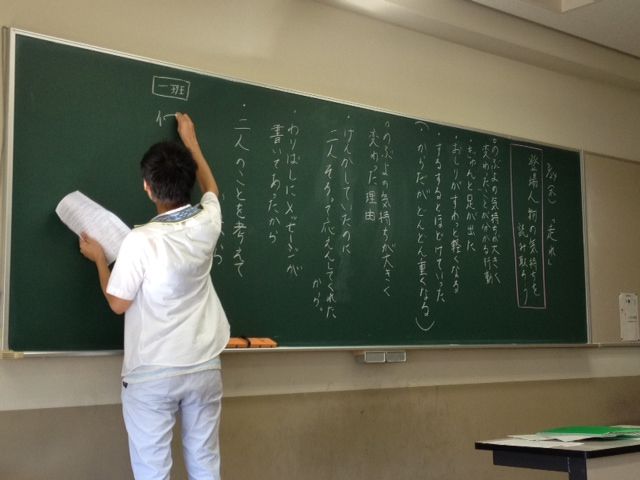 「走れ」
登場人物の気持ちを
読み取ろう
◎のぶよの気持ちが大きく
変わったことが分かる行動
・ちゃんと足が出た
・おしりがすわっと軽くなる
・するするとほどけていった
(からだが、どんどん重くなる)
◎のぶよの気持ちが大きく
変わった理由
・けんかしていたのに
二人そろって応えんしてくれた
から。
・わりばしにメッセージが
書いてあったから
・二人のことを考えて
一班